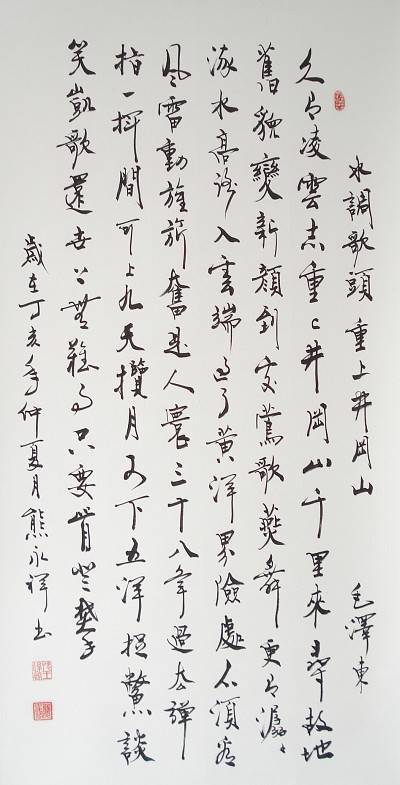 水調歌頭 重上井岡山 毛澤東
久有凌雲志重上井岡山千里來尋故地
舊貌變新顏到處鶯歌燕舞更有潺〻
流水高路入雲端過了黃洋界險處不須看
風雷動旌旂奮是人寰三十八年過去彈
指一揮間可上九天攬月可下五洋捉鱉談
笑凱歌還世上無難事只要肯登攀
歲在丁亥年仲夏月熊永祥書